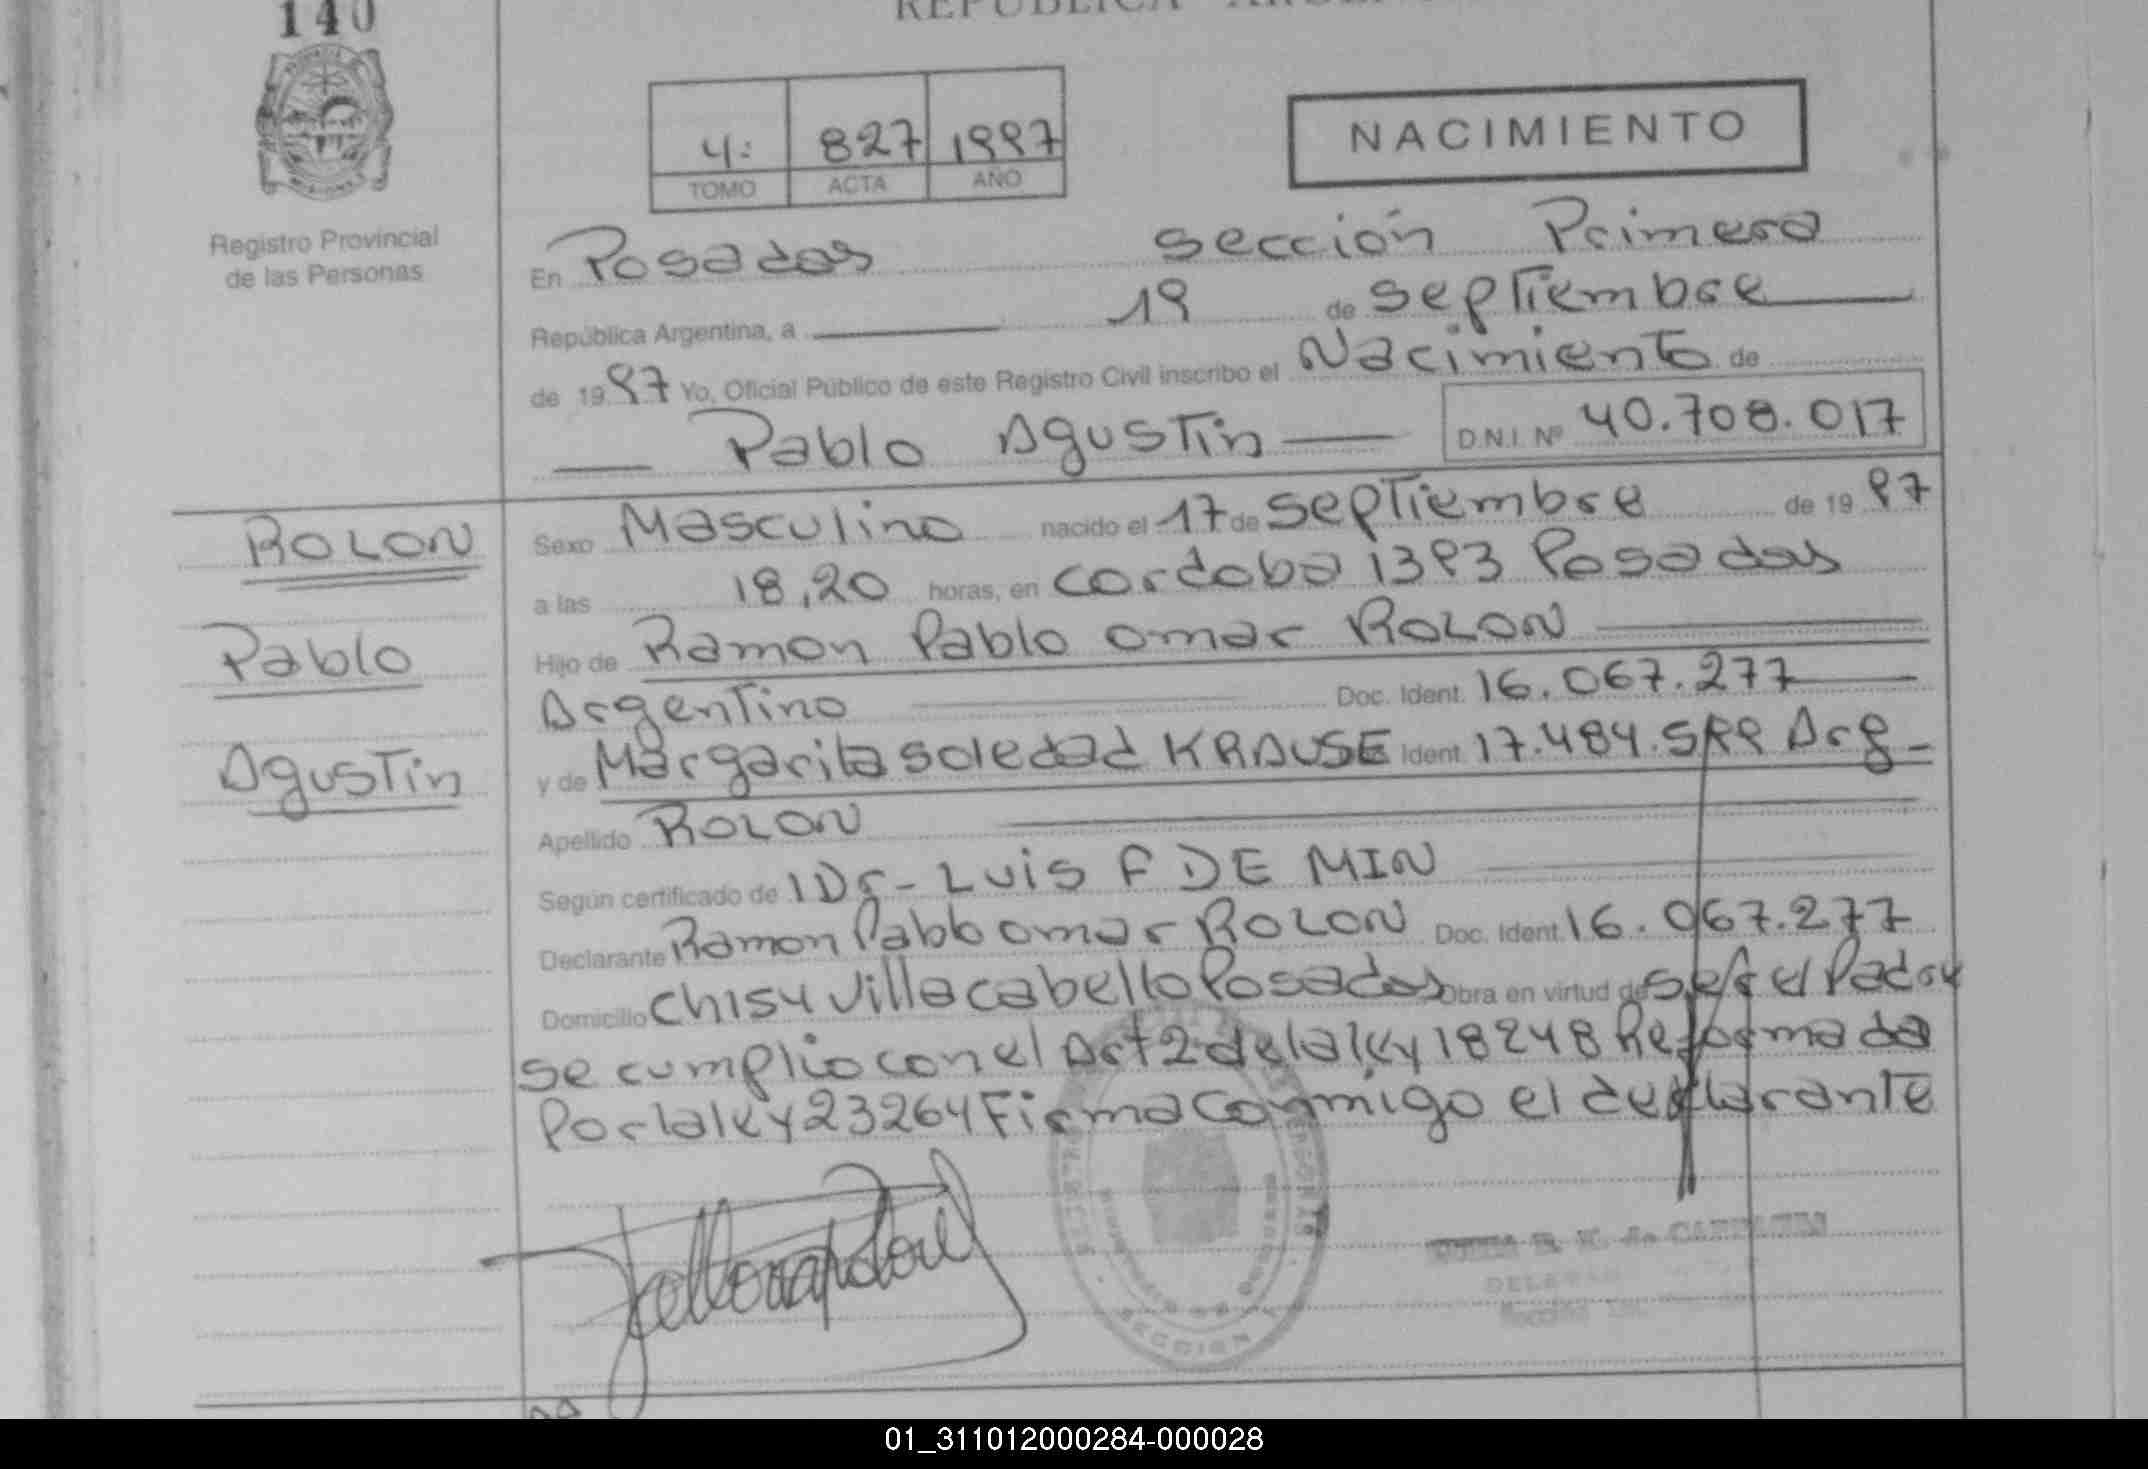 140
REPUBLICA
4: 827 1997
TOMO ACTA AÑO
NACIMIENTO
Registro Provincial
de las Personas
En Posadas sección Primera
República Argentina, a 19 de septiembre
de 1997 Yo, Oficial Público de este Registro Civil inscribo el Nacimiento de
Pablo Agustin D.N.I. Nº 40.708.017
ROLON
Pablo
Agustin
Sexo Masculino nacido el 17 de septiembre de 1997
a las 18,20 horas, en cordoba 1393 Posadas
Hijo de Ramon Pablo omar ROLON
Argentino Doc. Ident. 16.067.277
y de Margarita soledad KRAUSE Ident. 17.484.599 Arg
Apellido ROLON
Según certificado de Dr- Luis F DE MIN
Declarante Ramon Pablo omar ROLON Doc. Ident. 16.067.277
Domicilio chis4 villa cabello Posadas Obra en virtud de ser el Padre
se cumplio con el Art 2 de la ley 18248 Reformada
Por la ley 23264 Firma Conmigo el declarante
SECCION
01_311012000284-000028